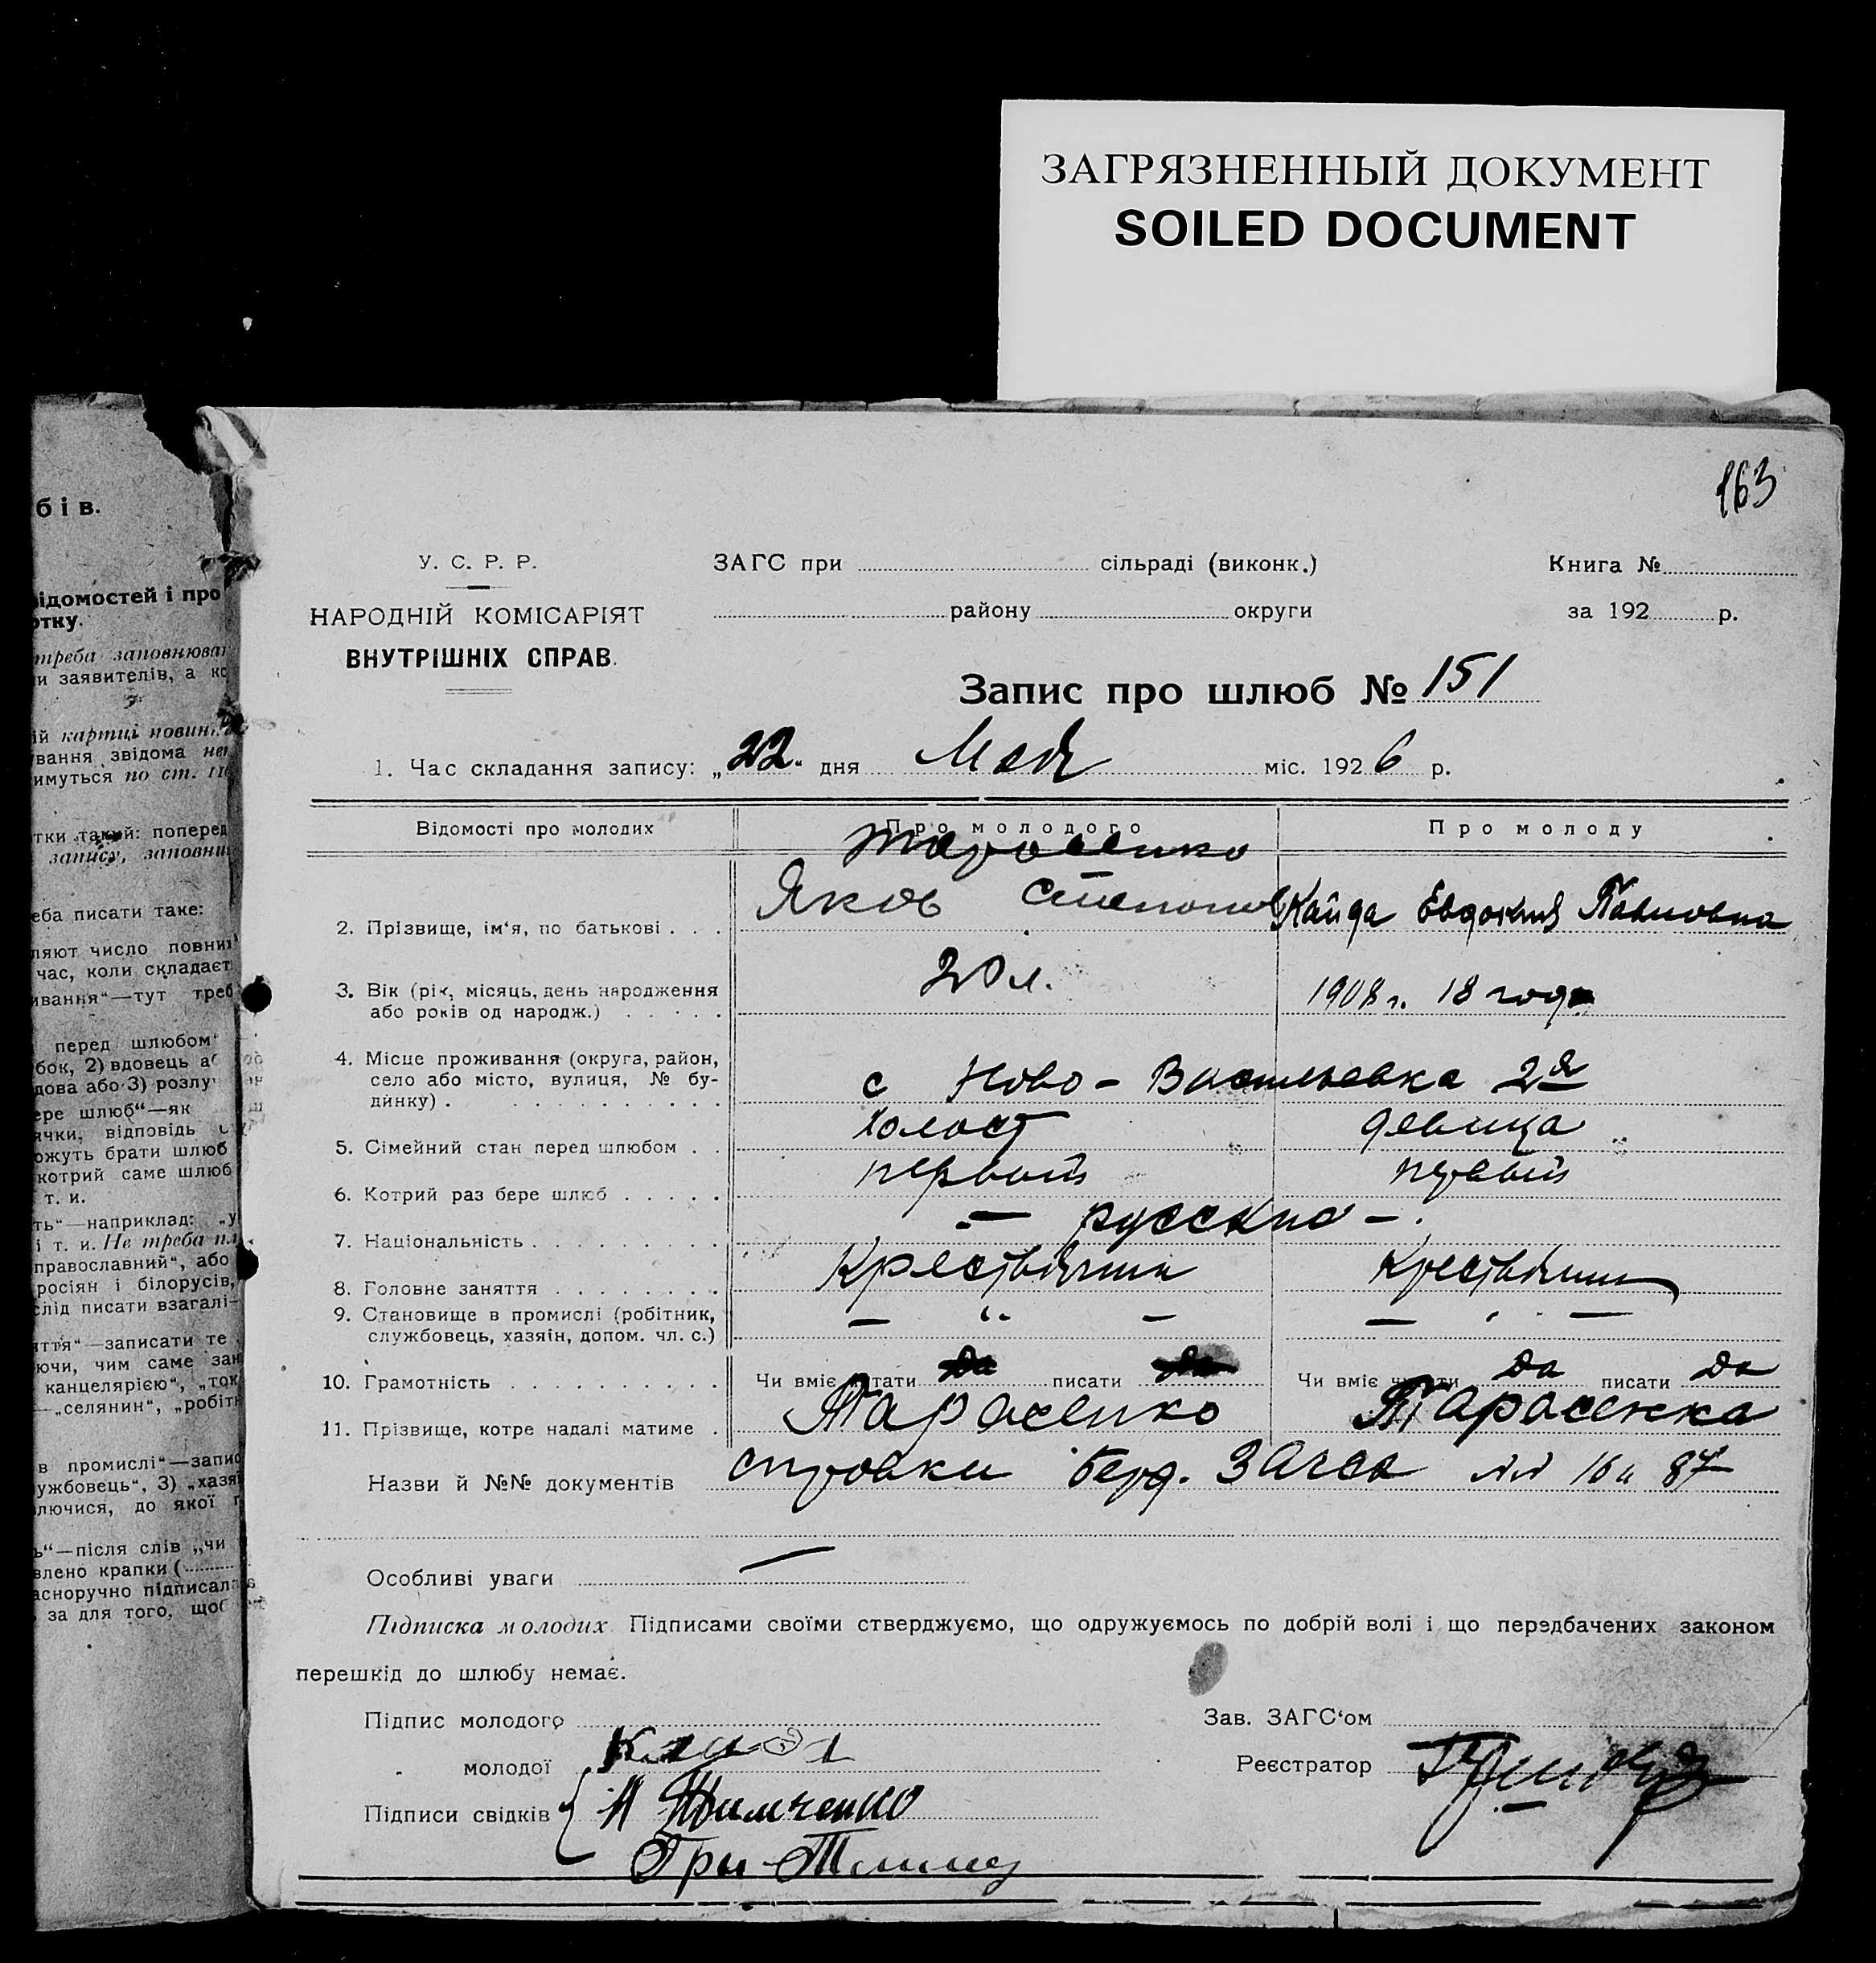 ЗАГРЯЗНЕННЫЙ ДОКУМЕНТ
SOILED DOCUMENT
163
бів.
ідомостей і про
отку.
треба заповнюват
и заявителів, а ко
ій картці повинн
ування звідома
имуться по ст.
тки такий: поперед
запису, заповни
еба писати таке:
ляют число повних
час, коли складаєт
ивання“—тут треб
перед шлюбом“
бок, 2) вдовець а
дова або 3) розлу
ере шлюб“—як
ячки, відповідь
ожуть брати шлюб
котрий саме шлюб
т. и.
ть“—наприклад: „у
і т. и. Не треба
православний“, або
росіян і білорусів,
слід писати взагалі—
иття“—записати те
ючи, чим саме зай
канцелярією“, „ток
—„селянин“, „робіт
в промислі“—запис
ужбовець“, 3) „хазя
лючися, до якої г
ь“—після слів „чи
влено крапки (
асноручно підписал
за для того, щоб
У. С. Р. Р.
НАРОДНІЙ КОМІСАРІЯТ
ВНУТРІШНІХ СПРАВ.
ЗАГС при сільраді (виконк.)
району округи
Книга №
за 192 р.
Запис про шлюб № 151
1. Час складання запису: „22“ дня Мая міс. 1926 р.
Відомості про молодих Про молодого Про молоду
Тарасенко
2. Прізвище, ім‘я, по батькові . . . Яков Степанов Кайда Евдокия Павловна
3. Вік (рік, місяць, день народження
або років од народж.) . . . . . 20 л. 1908 г. 18 года
4. Місце проживання (округа, район,
село або місто, вулиця, № бу-
динку) . . . . . . . . . . . . с Ново-Васильевка 2я
5. Сімейний стан перед шлюбом . . холост девица
6. Котрий раз бере шлюб . . . . . первый первый
7. Національність . . . . . . . . . — русские —
8. Головне заняття . . . . . . . . Крестьянин Крестьянин
9. Становище в промислі (робітник,
службовець, хазяїн, допом. чл. с.) — “ — — “ —
10. Грамотність . . . . . . . . . . Чи вміє читати да писати да Чи вміє читати да писати да
11. Прізвище, котре надалі матиме . Тарасенко Тарасенка
Назви й №№ документів справки Берд. ЗАГСа №№ 16 и 87
Особливі уваги —
Підписка молодих Підписами своїми стверджуємо, що одружуємось по добрій волі і що передбачених законом
перешкід до шлюбу немає.
Підпис молодого
Зав. ЗАГС‘ом
„ молодої Кайда
Реєстратор
Підписи свідків Тимченко
Гри